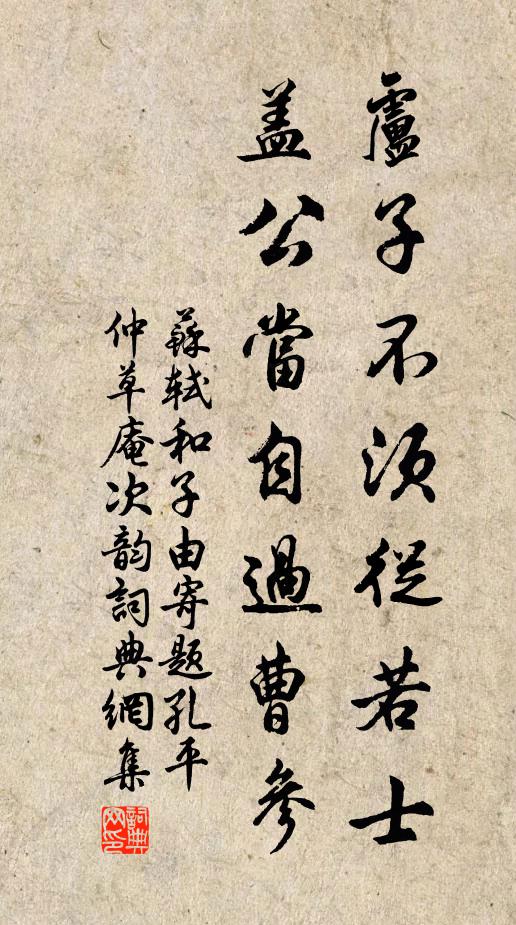 盧子不須從若士
盖公當自過曹參
蘇軾和子由寄題孔平
仲草庵次韵詞典網集
詞典网印